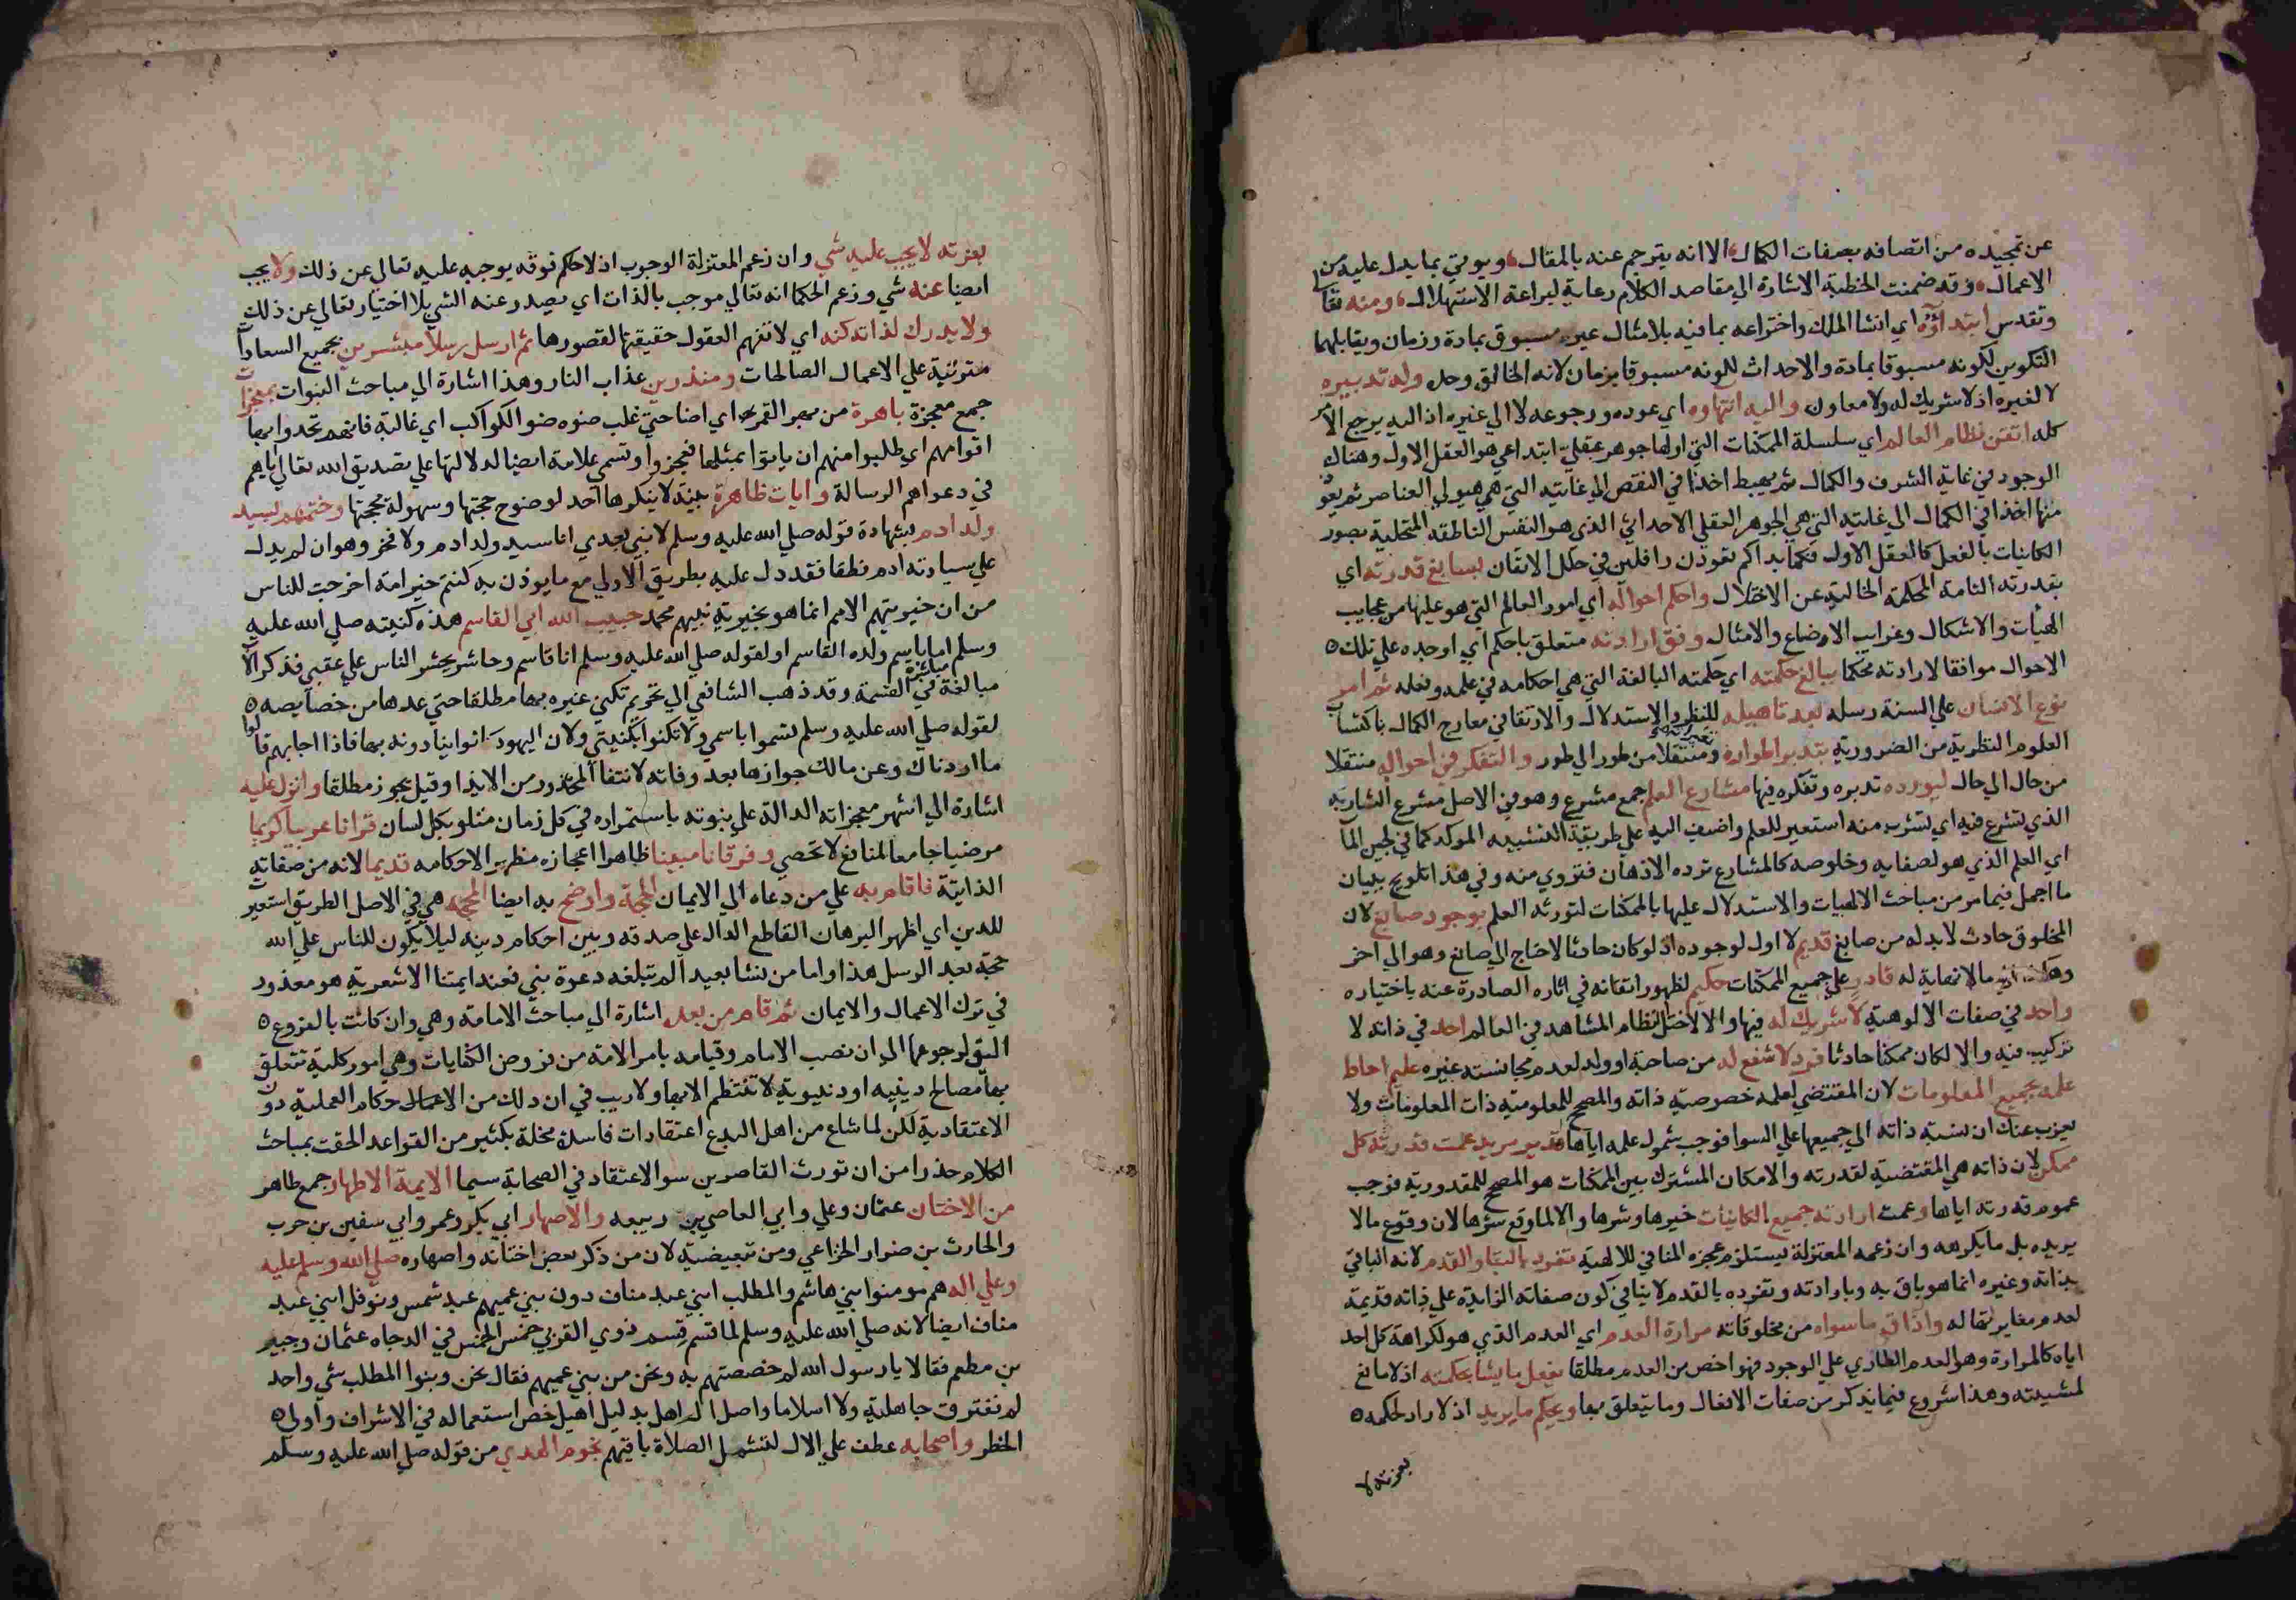 عن تمجيده من اتصافه بصفات الكمال الا انه يترجم عنه بالمقال ويوتي بما يدل عليه من
الاعمال وقد ضمنت الخطبة الاشارة الي مقاصد الكلام رعاية لبراعة الاستهلال ومنه
وتقدس ابتداؤه اي انشا الملك واختراعه بما فيه بلا مثال غير مسبوق بمادة وزمان ويقابلهما
التكوين لكونه مسبوقا بمادة والاحداث لكونه مسبوقا بزمان لانه الخالق وحده وله تدبيره
لا لغيره اذ لا شريك له ولا معاون واليه انتهاوه اي عوده ورجوعه لا الي غيره اذ اليه يرجع الامر
كله اتقن نظام العالم اي سلسلة الممكنات التي اولها جوهر عقلي ابتداعي هو العقل الاول وهناك
الوجود في غاية الشرف والكمال ثم يهبط اخذا في النقص الي غايته التي هي هيولي العناصر ثم يعود
منها اخذا في الكمال الي غايته التي هي الجوهر العقلي الاحداثي الذي هو النفس الناطقه المتحلية بصور
الكاينات بالفعل كالعقل الاول فكما بداكم تعودون رافلين في حلل الاتقان بسابغ قدرته اي
بقدرته التامة المحكمة الخالية عن الاختلال واحكم احواله اي امور العالم التي هو عليها من عجايب
الهيأت والاشكال وغرايب الاوضاع والامثال وفق ارادته متعلق باحكم اي اوجده علي تلك
الاحوال موافقا لارادته محكما ببالغ حكمته اي حكمته البالغة التي هي احكامه في علمه وفعله ثم امر
نوع الانسان علي السنة رسله بعد تاهيله للنظر والاستدلال والارتقا في معارج الكمال باكتساب
العلوم النظرية من الضرورية بتدبر اطواره ومنتقلا من طور الي طور والتفكر في احواله منتقلا
من حال الي حال ليورده تدبره وتفكره فيها مشارع العلم جمع مشرع وهو في الاصل مشرع الشاربه
الذي تشرع فيه اي تشرب منه استعير للعلم واضيف اليه علي طريقة التشبيه الموكد كما في لجين الما
اي العلم الذي هو لصفايه وخلوصه كالمشارع ترده الاذهان فتروي منه وفي هذا تلويح ببيان
ما اجمل فيما مر من مباحث الالهيات والاستدلال عليها بالممكنات لتورثه العلم بوجود صانع لان
المخلوق حادث لابد له من صانع قديم لا اول لوجوده اذ لو كان حادثا لاحتاج الي صانع وهو الي اخر
وهكذا الي ما لا نهاية له قادر علي جميع الممكنات حكيم لظهور اتقانه في اثاره الصادرة عنه باختياره
واحد في صفات الالوهية لا شريك له فيها والا لاختل النظام المشاهد في العالم احد في ذاته لا
تركيب فيه والا لكان ممكنا حادثا فرد لا شفع له من صاحبة او ولد لعدم مجانسته غيره عليم احاط
علمه بجميع المعلومات لان المقتضي لعلمه خصوصية ذاته والمصحح للمعلومية ذات المعلومات ولا
يعزب عنك ان نسبة ذاته الي جميعها علي السوا فوجب شمول علمه اياها قدير مريد عمت قدرته كل
ممكن لان ذاته هي المقتضية لقدرته والامكان المشترك بين الممكنات هو المصحح للمقدورية فوجب
عموم قدرته اياها وعمت ارادته جميع الكاينات خيرها وشرها والا لما وقع شرها لان وقوع ما لا
يريده بل ما يكرهه وان زعمه المعتزلة يستلزم عجزه المنافي للالهية متفرد بالبقا والقدم لانه الباقي
بذاته وغيره انما هو باق به وبارادته وتفرده بالقدم لا ينافي كون صفاته الزايدة علي ذاته قديمة
لعدم مغايرتها له واذاق ما سواه من مخلوقاته مرارة العدم اي العدم الذي هو لكراهة كل احد
اياه كالمرارة وهو العدم الطاري علي الوجود فهو اخص من العدم مطلقا يفعل ما يشا بحكمته اذ لا مانع
لمشيته وهذا شروع فيما يذكر من صفات الافعال وما يتعلق بها ويحكم ما يريد اذ لا راد لحكمه
بعزته لا
بعزته لا يجب عليه شي وان زعم المعتزلة الوجوب اذ لا حاكم فوقه يوجبه عليه تعالي عن ذلك ولا يجب
ايضا عنه شي وزعم الحكما انه تعالي موجب بالذات اي يصدر عنه الشي بلا اختيار تعالي عن ذلك
ولا يدرك لذاته كنه اي لا تفهم العقول حقيقتها لقصورها ثم ارسل رسلا مبشرين بجميع السعادات
متوثبة علي الاعمال الصالحات ومنذرين عذاب النار وهذا اشارة الي مباحث النبوات بمعجزات
جمع معجزة باهرة من بهر القمر اي اضا حتي غلب ضوه ضو الكواكب اي غالبة فانهم تحدوا بها
اقوامهم اي طلبوا منهم ان ياتوا بمثلها فعجزوا وتسمي علامة ايضا لدلالتها علي تصديق الله تعالي اياهم
في دعواهم الرسالة وايات ظاهرة بينة لا ينكرها احد لوضوح حجتها وسهولة محجتها وختمهم بسيد
ولد ادم بشهادة قوله صلي الله عليه وسلم لا نبي بعدي انا سيد ولد ادم ولا فخر وهو ان لم يدل
علي سيادته ادم نطقا فقد دل عليه بطريق الاولي مع ما يوذن به كنتم خير امة اخرجت للناس
من ان خيريتهم الامم انما هو بخيرية نبيهم محمد حبيب الله ابي القاسم هذه كنيته صلي الله عليه
وسلم اما باسم ولده القاسم او لقوله صلي الله عليه وسلم انا قاسم وحاشر يحشر الناس علي عقبي فذكر الاب
مبالغة في مباشرة القسمة وقد ذهب الشافعي الي تحريم تكني غيره بها مطلقا حتي عدها من خصايصه
لقوله صلي الله عليه وسلم تسموا باسمي ولا تكنوا بكنيتي ولان اليهود كانوا ينادونه بها فاذا اجابهم قالوا
ما اردناك وعن مالك جوازها بعد وفاته لانتفا المحذور من الايذا وقيل يجوز مطلقا وانزل عليه
اشارة الي اشهر معجزاته الدالة علي نبوته باستمراره في كل زمان متلو بكل لسان قرانا عربيا كريما
مرضيا جامعا لمنافع لا تحصي وفرقانا مبينا ظاهرا اعجازه مظهرا لاحكامه قديما لانه من صفاته
الذاتية فاقام به علي من دعاه الي الايمان الحجة واوضح به ايضا المحجة هي في الاصل الطريق استعيرت
للدين اي اظهر البرهان القاطع الدال علي صدقه وبين احكام دينه ليلا يكون للناس علي الله
حجة بعد الرسل هذا واما من نشا بعيدا لم تبلغه دعوة نبي فعند ايمتنا الاشعرية هو معذور
في ترك الاعمال والايمان ثم قام من بعده اشارة الي مباحث الامامة وهي وان كانت بالفروع
اليق لرجوعها الي ان نصب الامام وقيامه بامر الامة من فروض الكفايات وهي امور كلية تتعلق
بها مصالح دينيه او دنيوية لا تنتظم الا بها ولا ريب في ان ذلك من الاحكام العملية دون
الاعتقادية لكن لما شاع من اهل البدع اعتقادات فاسدة مخلة بكثير من القواعد الحقت بمباحث
الكلام حذرا من ان تورث القاصرين سو الاعتقاد في الصحابة سيما الايمة الاطهار جمع طاهر
من الاختان عثمان وعلي وابي العاصي بن ربيعه والاصهار ابي بكر وعمر وابي سفين بن حرب
والحارث بن ضرار الخزاعي ومن تبعيضية لان من ذكر بعض اختانه واصهاره صلي الله وسلم عليه
وعلي اله هم مومنوا بني هاشم والمطلب ابني عبد مناف دون بني عميهم عبد شمس ونوفل ابني عبد
مناف ايضا لانه صلي الله عليه وسلم لما قسم قسم ذوي القربي خمس الخمس في الد جاه عثمان وجبير
بن مطعم فقالا يا رسول الله لم خصصتهم به ونحن من بني عميهم فقال نحن وبنوا المطلب شي واحد
لم نفترق جاهلية ولا اسلاما واصل ال اهل بدليل اهيل خص استعماله في الاشراف واولي
الخطر واصحابه عطف علي الال لتشمل الصلاة باقيهم نجوم الهدي من قوله صلي الله عليه وسلم